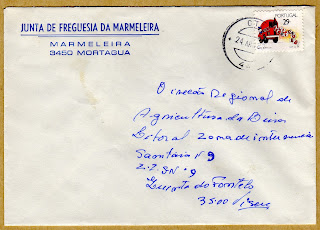 JUNTA DE FREGUESIA DA MARMELEIRA
MARMELEIRA
3450 MORTAGUA
PORTUGAL
29
Direcção Regional de
Agricultura da Beira
Litoral Zona de
Sanitária Nº 9
Z.I.S Nº 9
Quinta do Fontelo
3500 Viseu